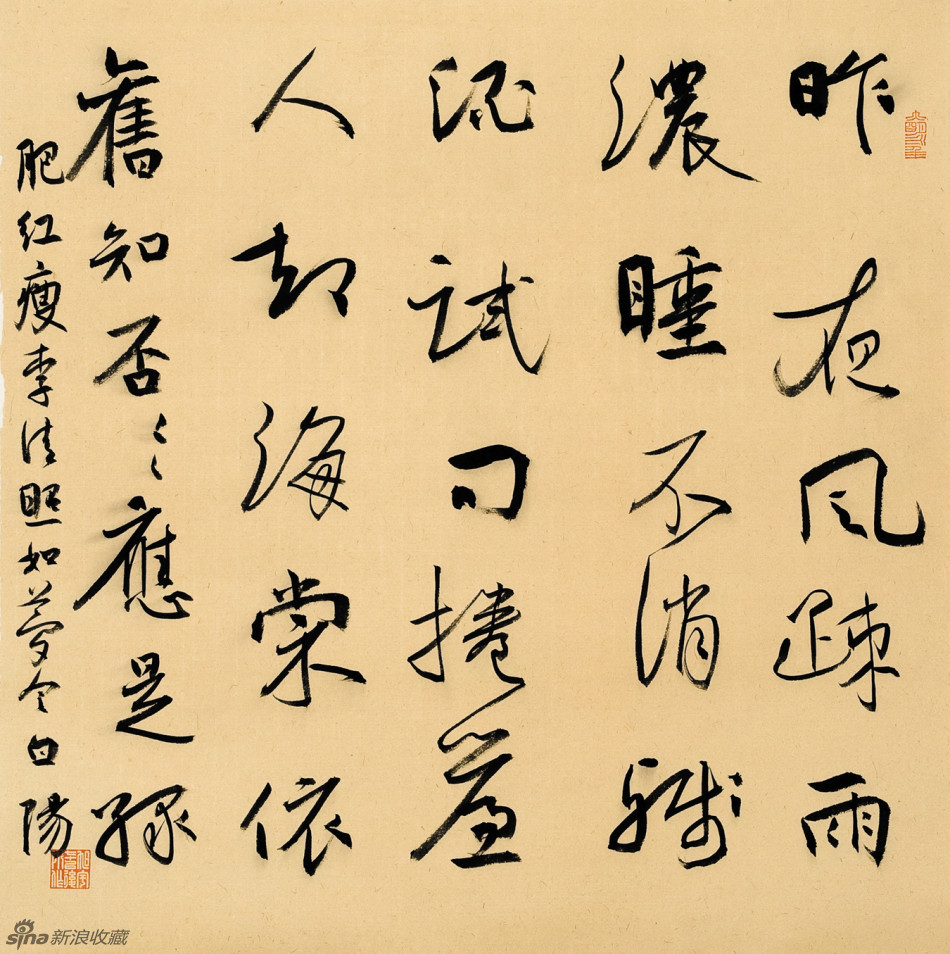 昨夜风疎雨
濃睡不消殘
酒試问捲簾
人却海棠依
舊知否〻〻應是緑
肥红瘦李清照如夢令白陽
sina新浪收藏